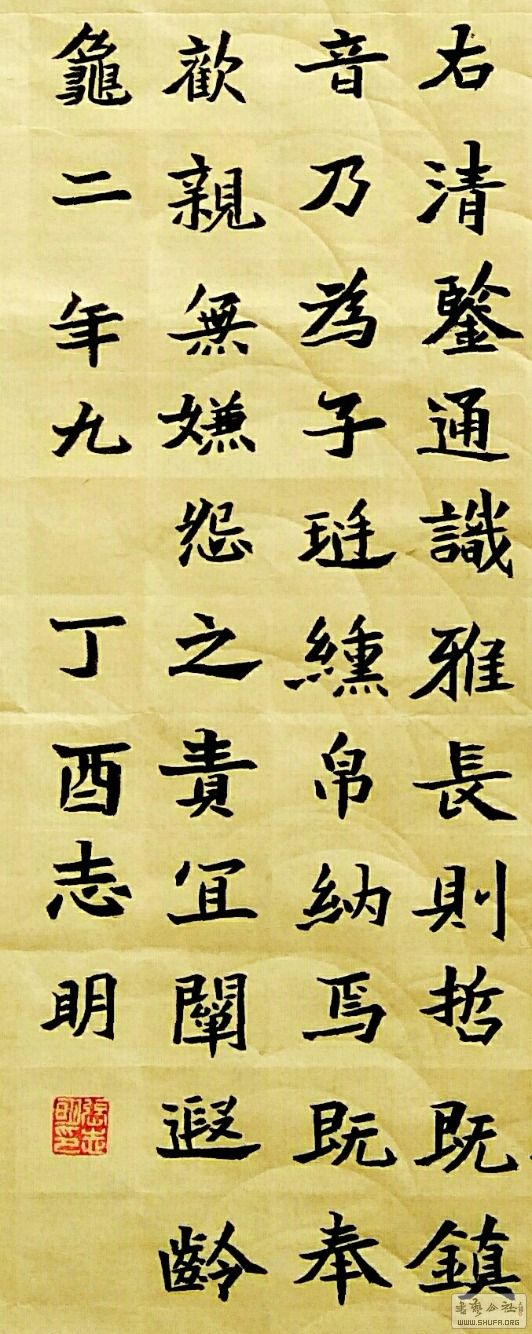 右清鑒通識雅長則哲既鎮
音乃為子琎纁帛納焉既奉
歡親無嫌怨之責宜闡遐齡
龜二年九 丁酉志明
WWW.SHUFA.ORG